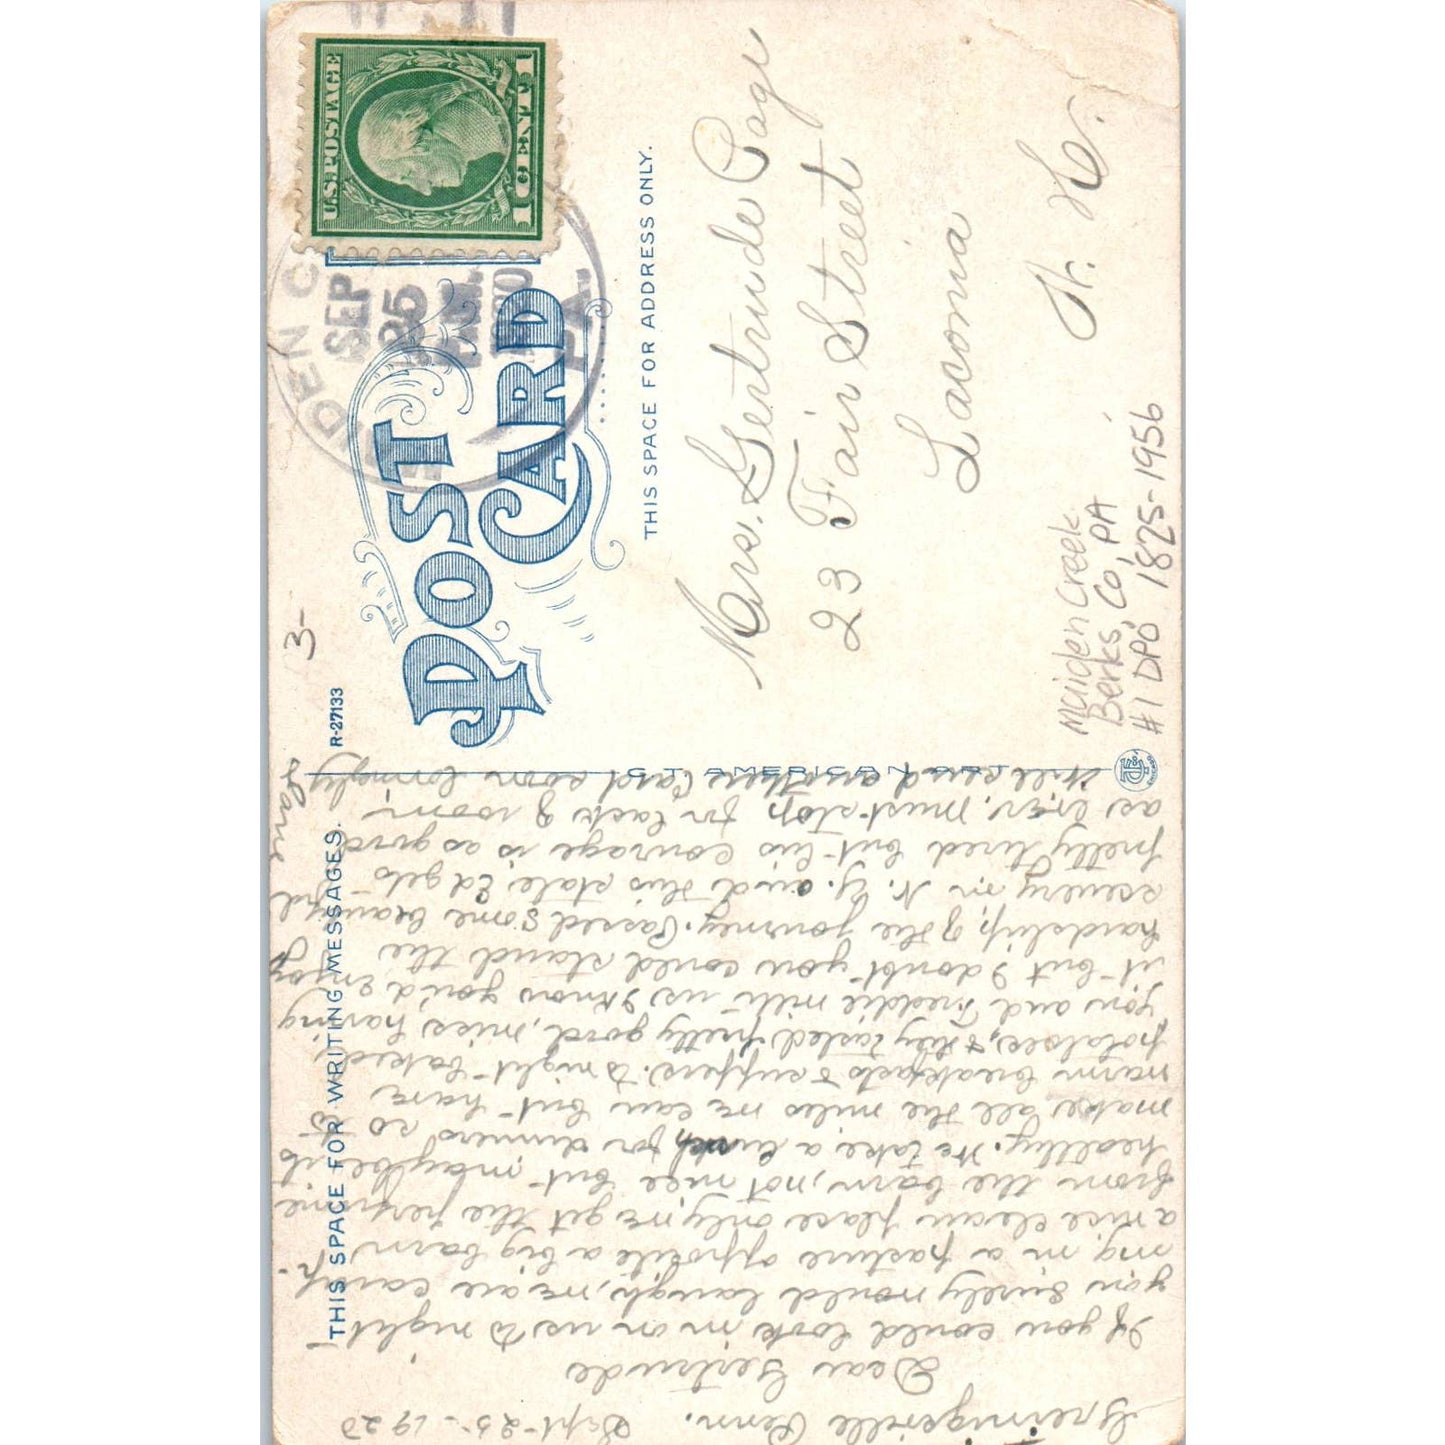 THIS SPACE FOR WRITING MESSAGES.
R-27133
3-
POST CARD
THIS SPACE FOR ADDRESS ONLY.
U.S. POSTAGE
1 CENT 1
DEN C
SEP
25
PA.
C.T. AMERICAN ART
Mrs. Gertrude Page
23 Fair Street
Laconia
N. H.
Maiden Creek
Berks, Co, PA
#1 DPO 1825-1956
Penn.
Sept-25-1920
Dear Gertrude
If you could look in on us to night
you surely would laugh, we are camp-
ing in a pasture opposite a big barn
a nice clean place only, we get the perfume
from the barn, not nice but maybe its
healthy. We take a lunch for dinners so to
make all the miles we can but have
warm breakfasts & suppers. To night baked
potatoes, & they tasted pretty good, miss having
you and Freddie with us I know you'd enjoy
it but I doubt you could stand the
hardship, of the journey. Passed some beautiful
scenery in N. Y. and this state. Ed gets
pretty tired but his courage is as good
as ever. Must stop for lack of room,
will send another Card soon lovingly